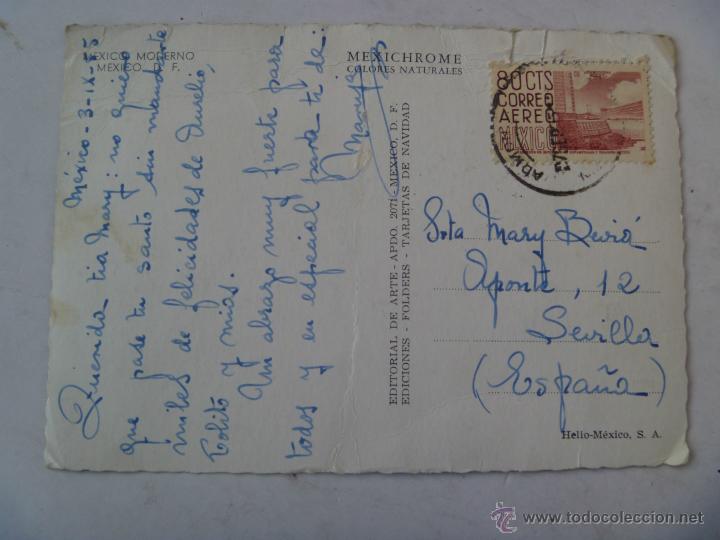 MEXICO MODERNO
MEXICO, D. F.
México-3-IX-55
Querida tía Mary: no quiero
que pase tu santo sin mandarte
miles de felicidades de Aurelio,
Lolito y mías.
Un abrazo muy fuerte para
todos y en especial para ti de:
Maruja
MEXICHROME
COLORES NATURALES
EDITORIAL DE ARTE - APDO. 2071 - MEXICO, D. F.
EDICIONES - FOLDERS - TARJETAS DE NAVIDAD
80 CTS
CORREO
AEREO
MEXICO
Srta Mary
Aponte, 12
Sevilla
(España)
Helio-México, S. A.
© todocoleccion
www.todocoleccion.net